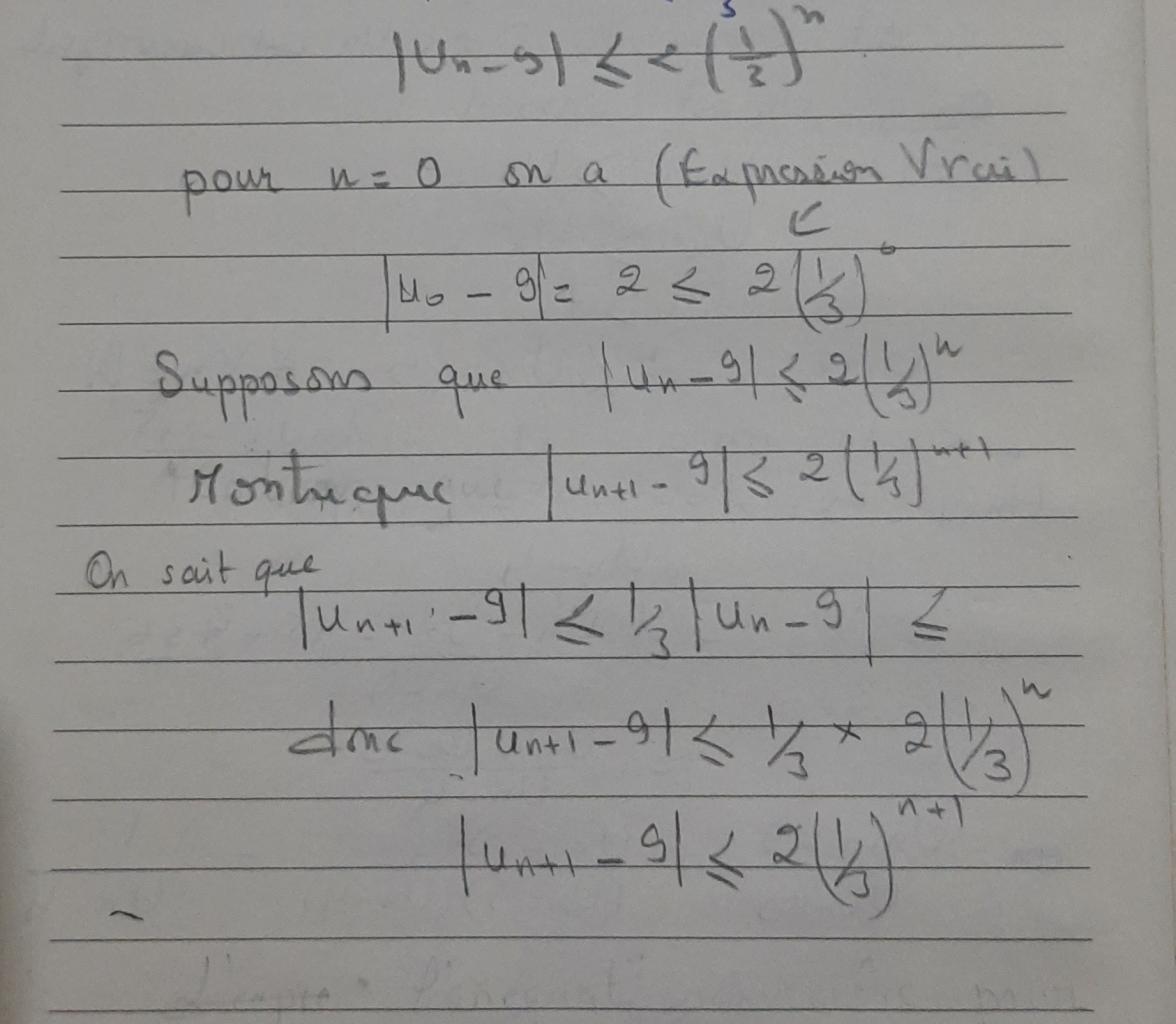 |Un - 9| ≤ 2 (1/3)^n
pour n = 0 on a (Expression Vrai)
|u0 - 9| = 2 ≤ 2 (1/3)^0
Supposons que |un - 9| ≤ 2 (1/3)^n
Montre que |un+1 - 9| ≤ 2 (1/3)^n+1
On sait que
|un+1 - 9| ≤ 1/3 |un - 9| ≤
donc |un+1 - 9| ≤ 1/3 × 2 (1/3)^n
|un+1 - 9| ≤ 2 (1/3)^n+1